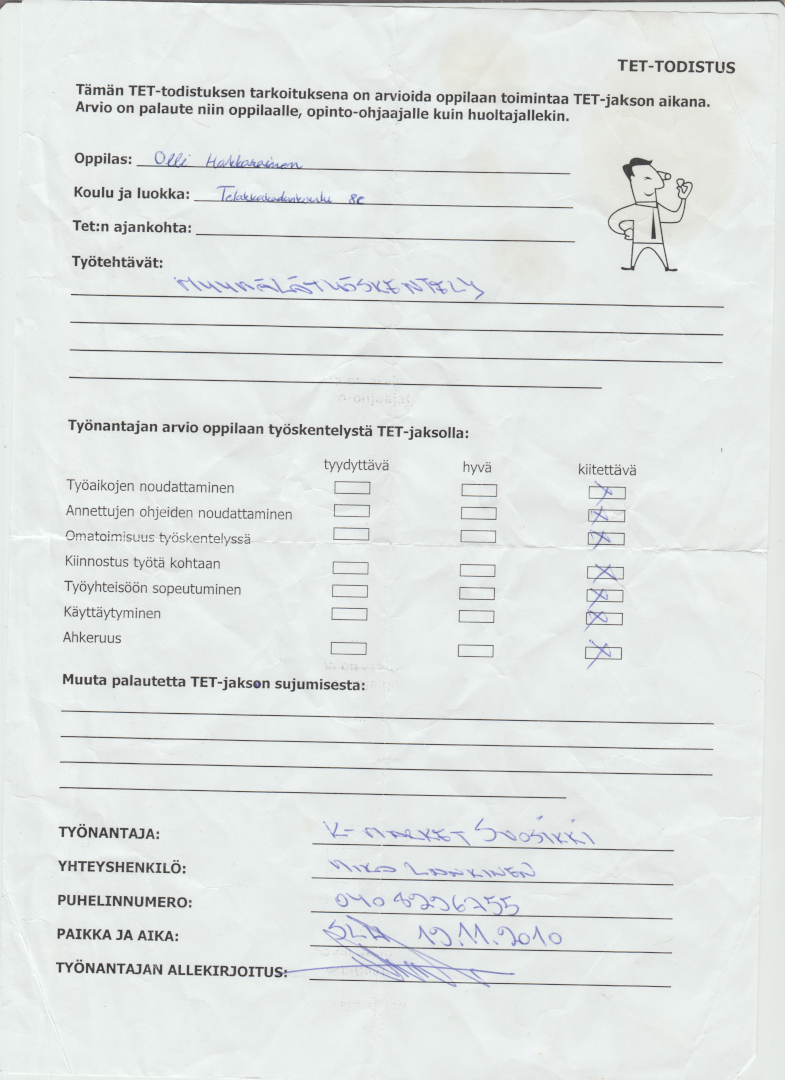 TET-TODISTUS
Tämän TET-todistuksen tarkoituksena on arvioida oppilaan toimintaa TET-jakson aikana.
Arvio on palaute niin oppilaalle, opinto-ohjaajalle kuin huoltajallekin.
Oppilas: Olli Hakkarainen
Koulu ja luokka: 8c
Tet:n ajankohta:
Työtehtävät:
MYYMÄLÄTYÖSKENTELY
Työnantajan arvio oppilaan työskentelystä TET-jaksolla:
tyydyttävä hyvä kiitettävä
Työaikojen noudattaminen
Annettujen ohjeiden noudattaminen
Omatoimisuus työskentelyssä
Kiinnostus työtä kohtaan
Työyhteisöön sopeutuminen
Käyttäytyminen
Ahkeruus
Muuta palautetta TET-jakson sujumisesta:
TYÖNANTAJA: K-MARKET SUOSIKKI
YHTEYSHENKILÖ: MIKA
PUHELINNUMERO: 040 8226755
PAIKKA JA AIKA: SLA 19.11.2010
TYÖNANTAJAN ALLEKIRJOITUS: